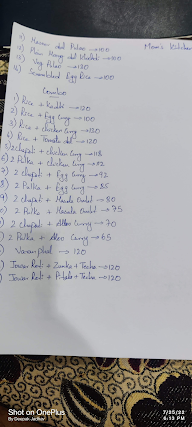 Mom's Kitchen
11) Masoor dal Pulao → 100
2) Plain Moong dal khichdi → 100
3) Veg Pulao → 120
4) Scrambled Egg Rice → 100
Combo
1) Rice + Kadhi → 120
2) Rice + Egg Curry → 100
3) Rice + chicken Curry → 150
4) Rice + Tomato dal → 120
5) 2 chapati + chicken Curry → 118
6) 2 Pulka + chicken Curry → 112
7) 2 chapati + Egg Curry → 92
8) 2 Pulka + Egg Curry → 85
9) 2 chapati + Masala Omlet → 80
2 Pulka + Masala Omlet → 75
2 chapati + Aloo Curry → 70
2 Pulka + Aloo Curry → 65
Varanphal → 120
Jowar Roti + Zunka + Techa → 120
Jowar Roti + Pitala + Techa → 120
Shot on OnePlus
By Deepak Jadhav
7/25/22
6:13 PM